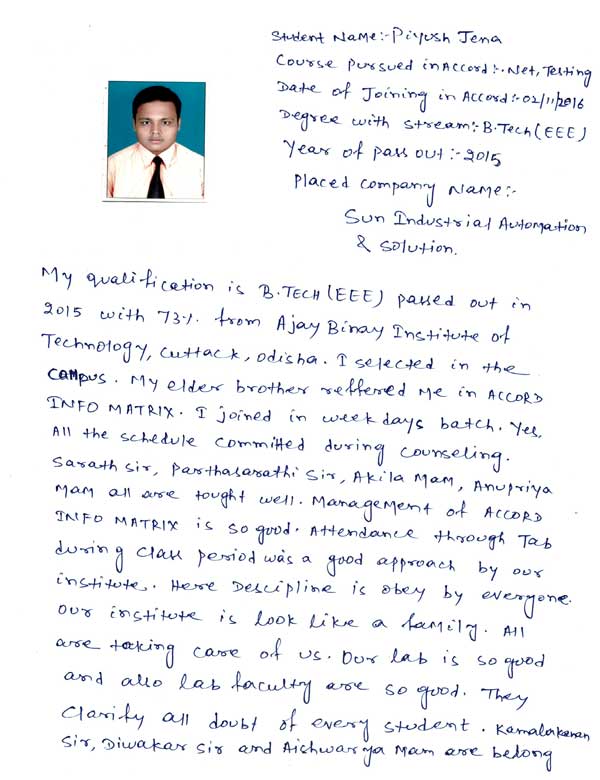 Student Name:- Piyush Jena
Course pursued in Accord:- .Net, Testing
Date of Joining in Accord:- 02/11/2016
Degree with stream:- B.Tech (EEE)
Year of pass out:- 2015
Placed company Name:-
Sun Industrial Automation
& solution.
My qualification is B.TECH (EEE) passed out in
2015 with 73%. from Ajay Binay Institute of
Technology, cuttack, odisha. I selected in the
campus. My elder brother reffered me in ACCORD
INFO MATRIX. I joined in week days batch. Yes,
All the schedule committed during counseling.
Sarath sir, Parthasarathi sir, Akila Mam, Anupriya
Mam all are tought well. Management of ACCORD
INFO MATRIX is so good. Attendance through Tab
during class period was a good approach by our
institute. Here Descipline is obey by everyone.
Our institute is look like a family. All
are taking care of us. Our lab is so good
and also lab faculty are so good. They
clarify all doubt of every student. Kamalakanan
Sir, Diwakar sir and Aishwarya Mam are belong